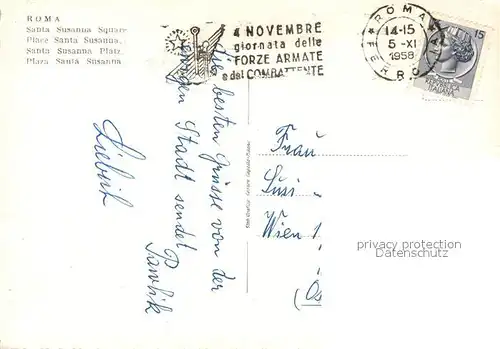 ROMA
Santa Susanna Square
Place Santa Susanna,
Santa Susanna Platz,
Plaza Santa Susanna
4 NOVEMBRE
giornata delle
FORZE ARMATE
e del COMBATTENTE
ROMA
14-15
5-XI
1958
FERR
15
ITALIANA
Die besten Grüsse von der
ewigen Stadt sendet
Pawlik
Liebich
Frau
Susi
Wien 1
(Ös
privacy protection
Datenschutz